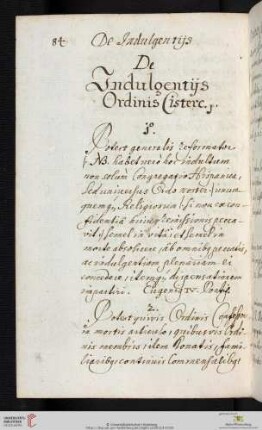 84 De Indulgentijs
De
Indulgentijs
Ordinis Cisterc.
1º.
Potest generalis Reformator
(NB. habet neio hoc Indultum
non solum Congregatio Hispanica,
sed universus Ordo noster) unum
quemq; Religiosum, si non ea con
fidentia huius concessionis pecca
vit, semel in vita, et semel in
morte absolvere ab omnibq peccatis,
ac indulgentiam plenariam ei
concedere, itemq; dispensationem
impartiri. Eugenius IV. Pontif.
2.
Potest quivis Ordinis Confessor
in mortis articulo, quibusvis Ordi
nis membris, item Donatis, fami
liaribq continuis Commensalibq